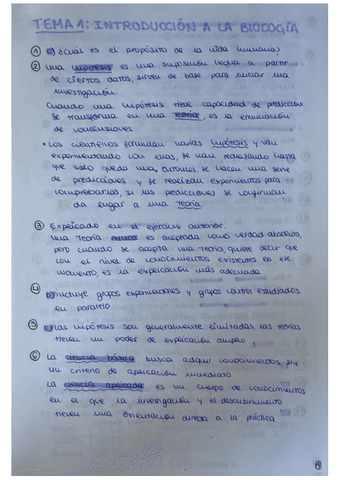 TEMA 1: INTRODUCCIÓN A LA BIOLOGÍA
① a) ¿Cuál es el propósito de la vida humana?
② una hipótesis es una suposición hecha a partir
de ciertos datos, sirven de base para iniciar una
investigación.
Cuando una hipótesis tiene capacidad de predicción
se transforma en una teoría, es la enunciación
de conclusiones
• Los científicos formulan varias hipótesis y van
experimentando con ellas, se van rechazando hasta
que solo queda una, entonces se hacen una serie
de predicciones y se realizan experimentos para
comprobarlas, si las predicciones se confirman
da lugar a una teoría.
③ Explicado en el ejercicio anterior.
una teoría es aceptada como verdad absoluta,
pero cuando se acepta una teoría quiere decir que
con el nivel de conocimientos existentes en ese
momento, es la explicación más adecuada
④ incluye grupos experimentales y grupos control estudiados
en paralelo
⑤ las hipótesis son generalmente limitadas, las teorías
tienen un poder de explicación amplio
⑥ La ciencia básica busca adquirir conocimientos, sin
un criterio de aplicación inmediato
La ciencia aplicada es un cuerpo de conocimientos
en el que la investigación y el descubrimiento
tienen una orientación directa a la práctica